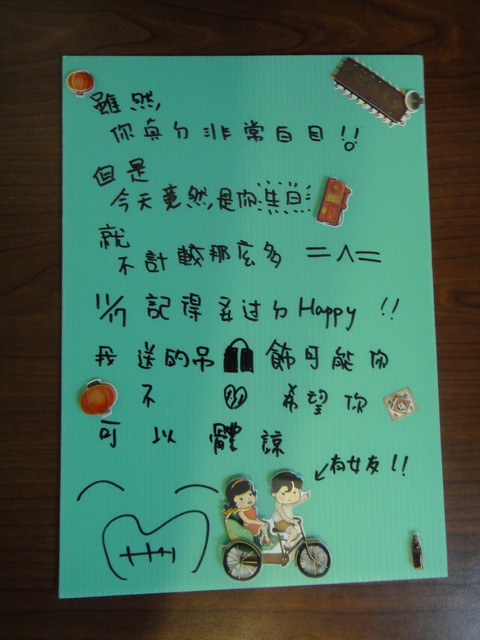 雖然,
你真ㄉ非常白目!!
但是
今天竟然,是你生日
就
不計較那麼多 =^=
11/17 記得要过ㄉHappy !!
我送的吊飾可能你
不 希望你
可以體諒
↙有女友!!